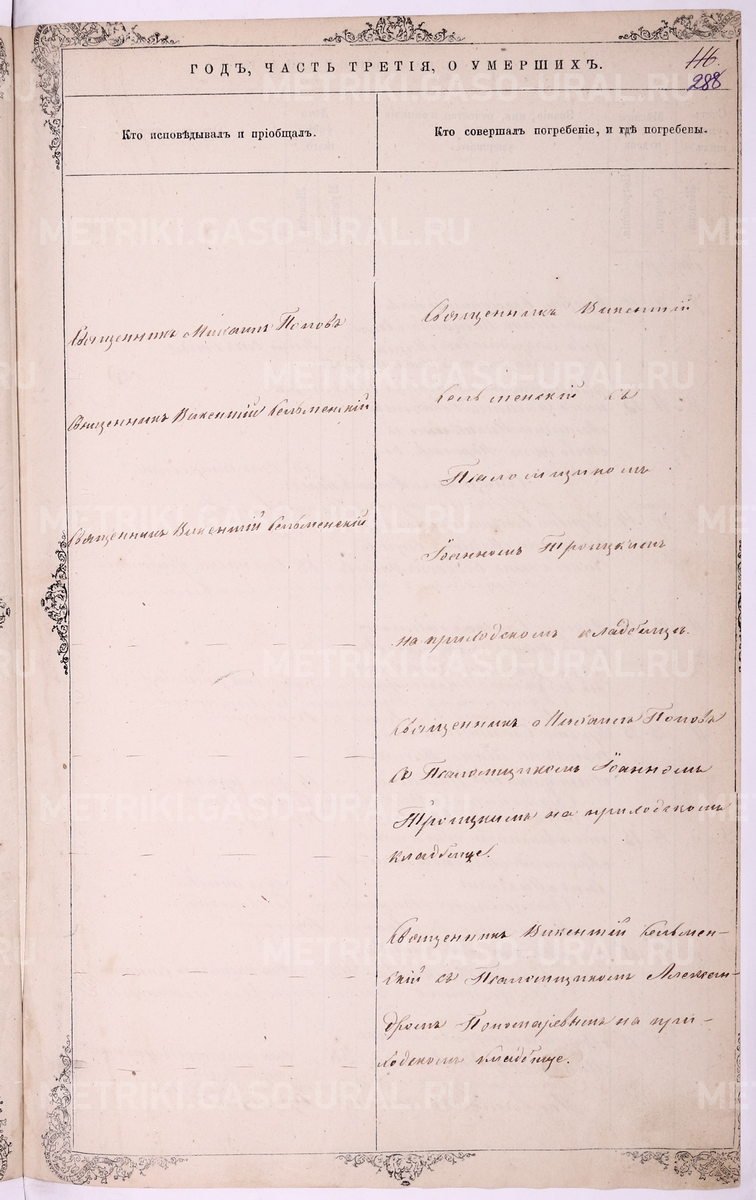 116.
288
ГОДЪ, ЧАСТЬ ТРЕТІЯ, О УМЕРШИХЪ.
Кто исповѣдывалъ и пріобщалъ.
Кто совершалъ погребеніе, и гдѣ погребены.
Священникъ Михаилъ Поповъ
Священникъ Викентій Кельменскій
Священникъ Викентій Кельменскій
Священникъ Викентій
Кельменскій съ
Псаломщикомъ
Іоанномъ Троицкимъ
на приходскомъ кладбищѣ.
Священникъ Михаилъ Поповъ
съ Псаломщикомъ Іоанномъ
Троицкимъ на приходскомъ
кладбище.
Священникъ Викентій Кельмен-
скій съ Псаломщикомъ Алексан-
дромъ Пономаревымъ на при-
ходскомъ кладбище.
METRIKI.GASO-URAL.RU